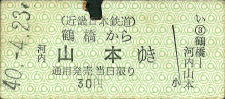 40.-4.23
(近畿日本鉄道)
鶴橋から
河内山本ゆき
通用発売当日限り
30円
い
③
鶴橋
河内山本